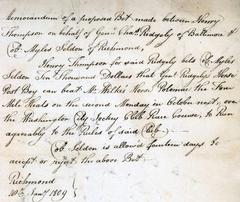 Memorandum of a proposed Bet made between Henry
Thompson on behalf of Genl Chas Ridgely of Baltimore &
Col Myles Selden of Richmond,
Henry Thompson for said Ridgely bets Col Myles
Selden Ten Thousand Dollars that Genl Ridgelys Horse
Post Boy can beat Mr Wilkes Horse Potomac the Four
Mile Heats on the second Monday in October next, over
the Washington City Jockey Club Race Course, to Run
agreeably to the Rules of said Club.
Col Selden is allowed fourteen days to
accept or reject the above Bet.
Richmond
10th Jany 1809